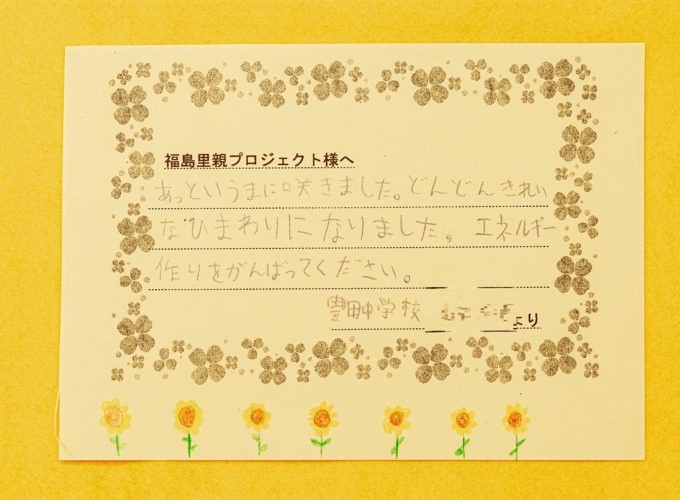 福島里親プロジェクト様へ
あっというまに咲きました。どんどんきれい
なひまわりになりました。エネルギー
作りをがんばってください。
豊田中学校 より